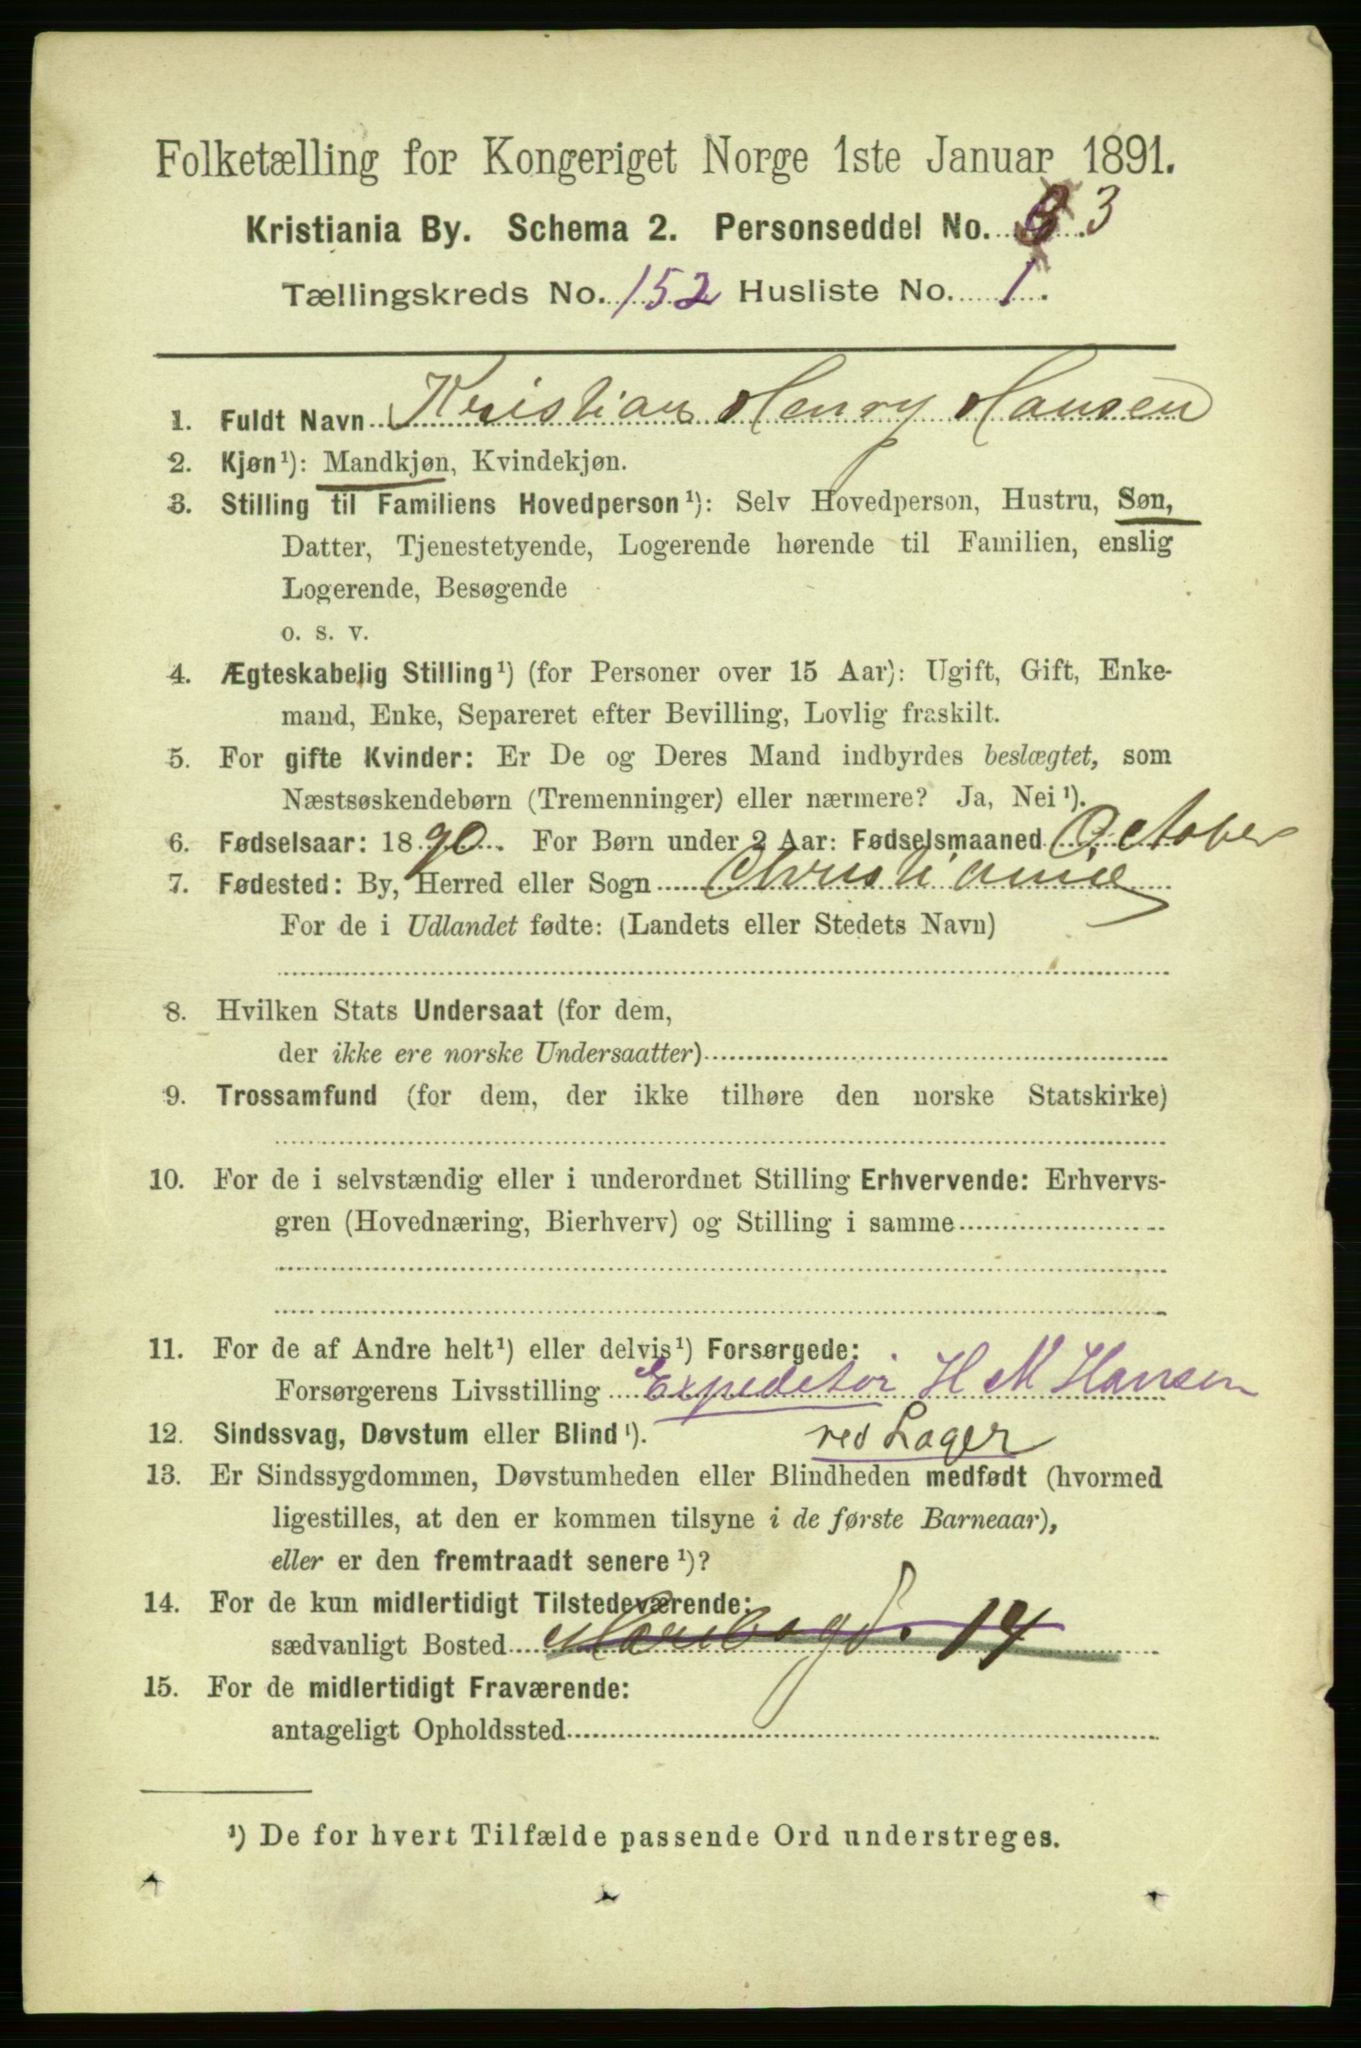 Folketælling for Kongeriget Norge 1ste Januar 1891.
Kristiania By. Schema 2. Personseddel No. 3
Tællingskreds No. 152 Husliste No. 1.
1. Fuldt Navn Kristian Henry Hansen
2. Kjøn¹): Mandkjøn, Kvindekjøn.
3. Stilling til Familiens Hovedperson¹): Selv Hovedperson, Hustru, Søn,
Datter, Tjenestetyende, Logerende hørende til Familien, enslig
Logerende, Besøgende
o. s. v.
4. Ægteskabelig Stilling¹) (for Personer over 15 Aar): Ugift, Gift, Enke-
mand, Enke, Separeret efter Bevilling, Lovlig fraskilt.
5. For gifte Kvinder: Er De og Deres Mand indbyrdes beslægtet, som
Næstsøskendebørn (Tremenninger) eller nærmere? Ja, Nei¹).
6. Fødselsaar: 1890. For Børn under 2 Aar: Fødselsmaaned October
7. Fødested: By, Herred eller Sogn Christiania
For de i Udlandet fødte: (Landets eller Stedets Navn)
8. Hvilken Stats Undersaat (for dem,
der ikke ere norske Undersaatter)
9. Trossamfund (for dem, der ikke tilhøre den norske Statskirke)
10. For de i selvstændig eller i underordnet Stilling Erhvervende: Erhvervs-
gren (Hovednæring, Bierhverv) og Stilling i samme
11. For de af Andre helt¹) eller delvis¹) Forsørgede:
Forsørgerens Livsstilling Expeditør H M Hansen
12. Sindssvag, Døvstum eller Blind¹). ved Lager
13. Er Sindssygdommen, Døvstumheden eller Blindheden medfødt (hvormed
ligestilles, at den er kommen tilsyne i de første Barneaar),
eller er den fremtraadt senere¹)?
14. For de kun midlertidigt Tilstedeværende:
sædvanligt Bosted 14
15. For de midlertidigt Fraværende:
antageligt Opholdssted
¹) De for hvert Tilfælde passende Ord understreges.